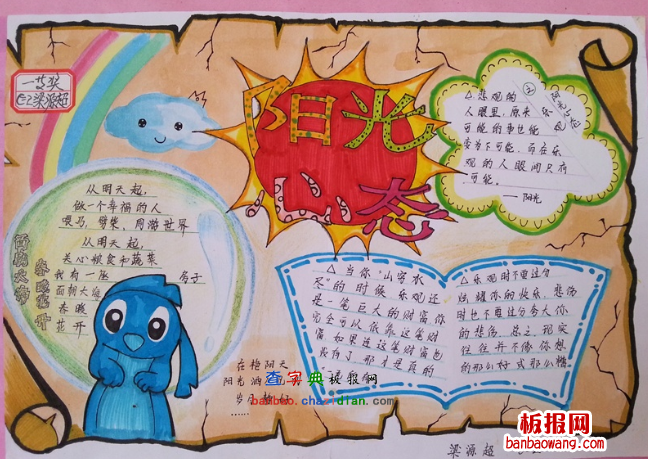 一等奖
梁源超
阳光
心态
从明天起,
做一个幸福的人
喂马,劈柴,周游世界
从明天起,
关心粮食和蔬菜
我有一所 房子
面朝大海
春暖
花开
面朝大海
春暖花开
△悲观的
人眼里,原来
可能的事也能
变为不可能,而在乐
观的人眼间只有
可能。
——阳光
△当你“山穷水
尽”的时候乐观还
是一笔巨大的财富,你
完全可以依靠这笔财
富,如果连这笔财富也
那才是真的
△乐观时不要过分
你的快乐,悲伤
时也不要过分夸大你
的悲伤,总之,现实
往往并不像你想
的那么好或那么糟。
在艳阳天
阳光洒
岁月
……
查字典板报网
banbao.chazidian.com
梁源超
板报网
banbaowang.com